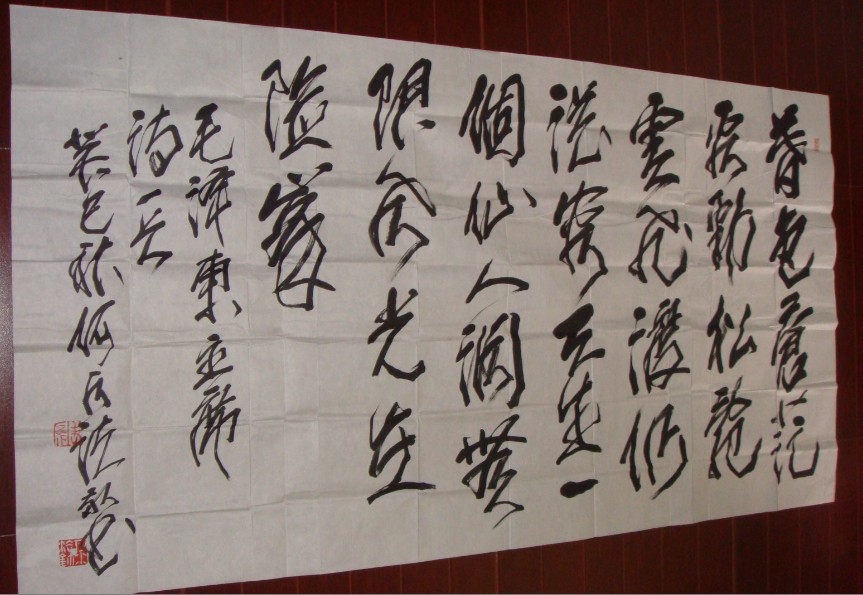 暮色蒼茫
看勁松亂
雲飛渡仍
從容天生一
個仙人洞無
限風光在
險峯
毛澤東主席
詩
癸巳秋何